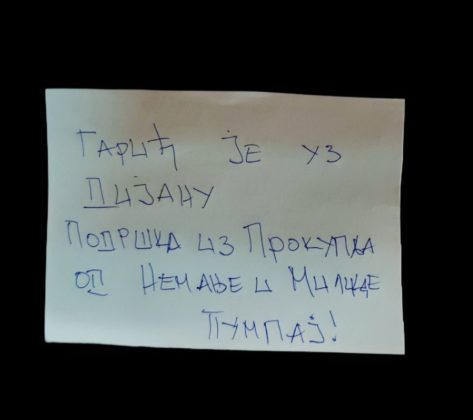 Гарић је уз
Дијану
Подршка из Прокупља
од Немање и Милице
Пумпај!